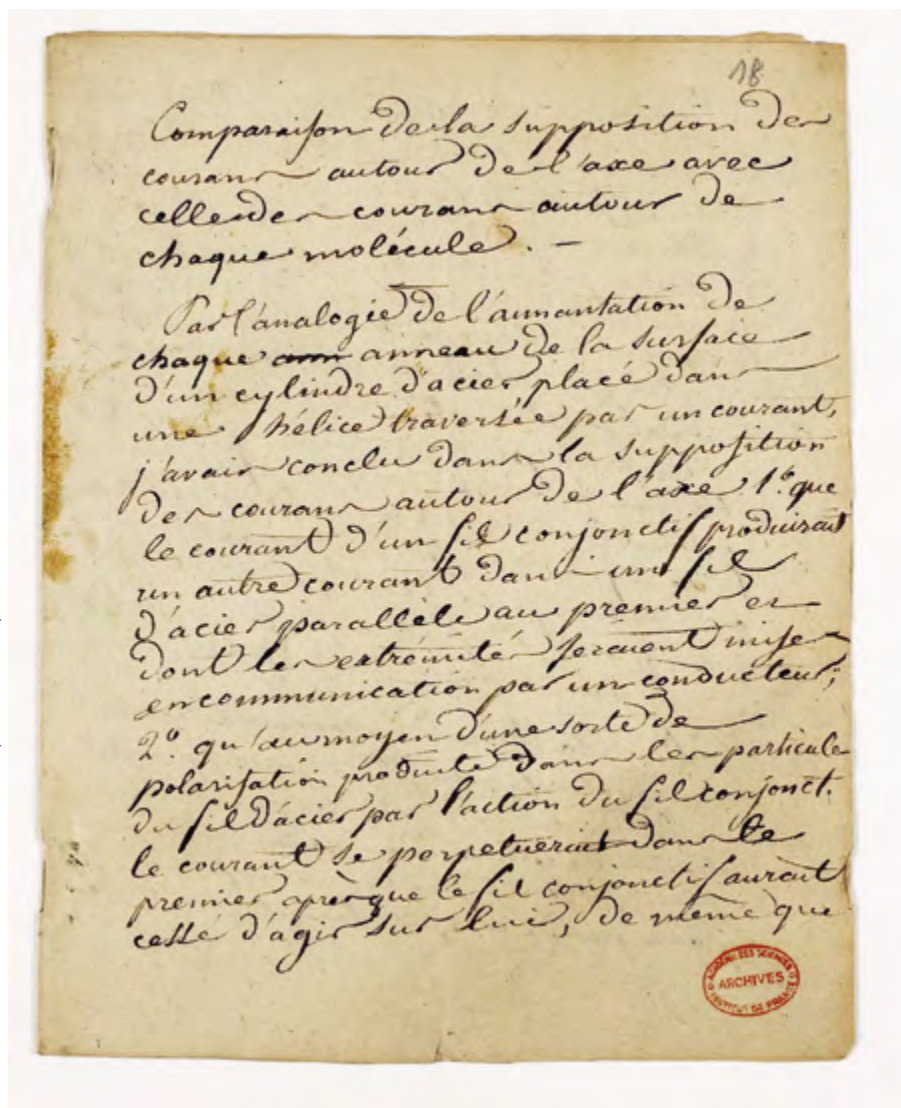 18
Comparaison de la supposition des
courans autour de l'axe avec
celle des courans autour de
chaque molécule. —
Par l'analogie de l'aimantation de
chaque ann anneau de la surface
d'un cylindre d'acier placé dans
une hélice traversée par un courant,
j'avais conclu dans la supposition
des courans autour de l'axe 1.º que
le courant d'un fil conjonctif produirait
un autre courant dans un fil
d'acier parallèle au premier et
dont les extrémités seraient mises
en communication par un conducteur;
2.º qu'au moyen d'une sorte de
polarisation produite dans les particules
du fil d'acier par l'action du fil conjonct.
le courant se perpetuerait dans le
premier après que le fil conjonctif aurait
cessé d'agir sur lui, de même que
ACADÉMIE DES SCIENCES
ARCHIVES
INSTITUT DE FRANCE